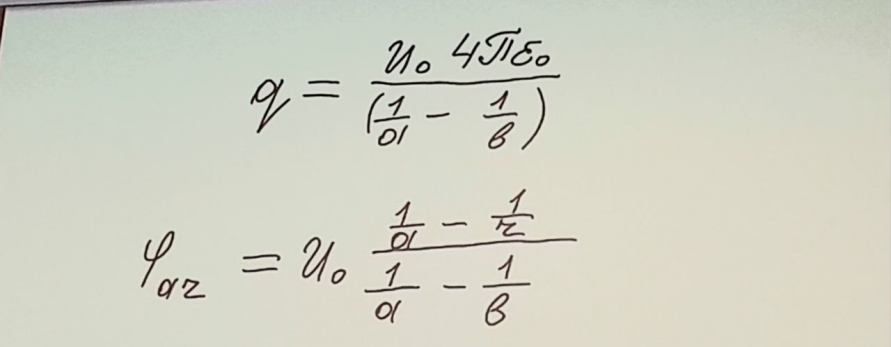 q = \frac{U_0 4\pi\varepsilon_0}{(\frac{1}{a} - \frac{1}{b})}
\varphi_{ar} = U_0 \frac{\frac{1}{a} - \frac{1}{r}}{\frac{1}{a} - \frac{1}{b}}